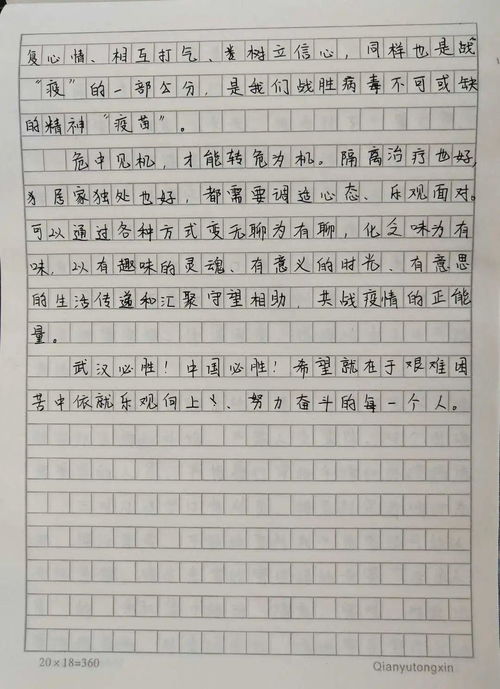 复心情、相互打气、树立信心，同样也是战
“疫”的一部分，是我们战胜病毒不可或缺
的精神“疫苗”。
危中见机，才能转危为机。隔离治疗也好，
居家独处也好，都需要调适心态、乐观面对。
可以通过各种方式变无聊为有聊，化乏味为有
味，以有趣味的灵魂、有意义的时光、有意思
的生活传递和汇聚守望相助，共战疫情的正能
量。
武汉必胜！中国必胜！希望就在于艰难困
苦中依就乐观向上、努力奋斗的每一个人。
20×18=360
Qianyutongxin